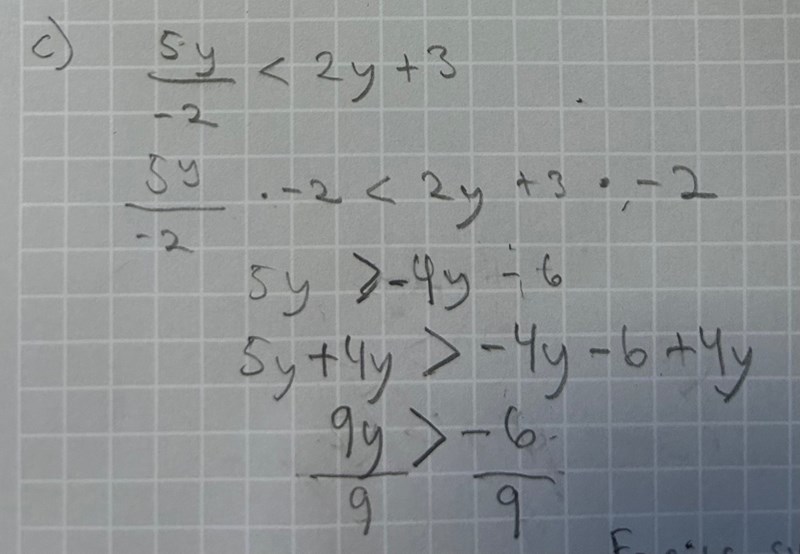 c) 5y/-2 < 2y + 3
5y/-2 · -2 < 2y + 3 · -2
5y > -4y - 6
5y + 4y > -4y - 6 + 4y
9y/9 > -6/9